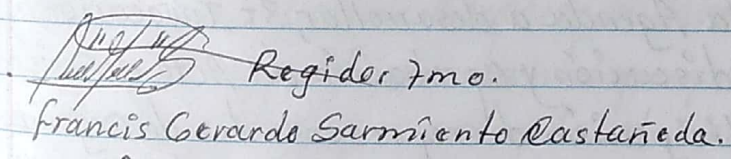 Regidor 7mo.
Francis Gerardo Sarmiento Castañeda.